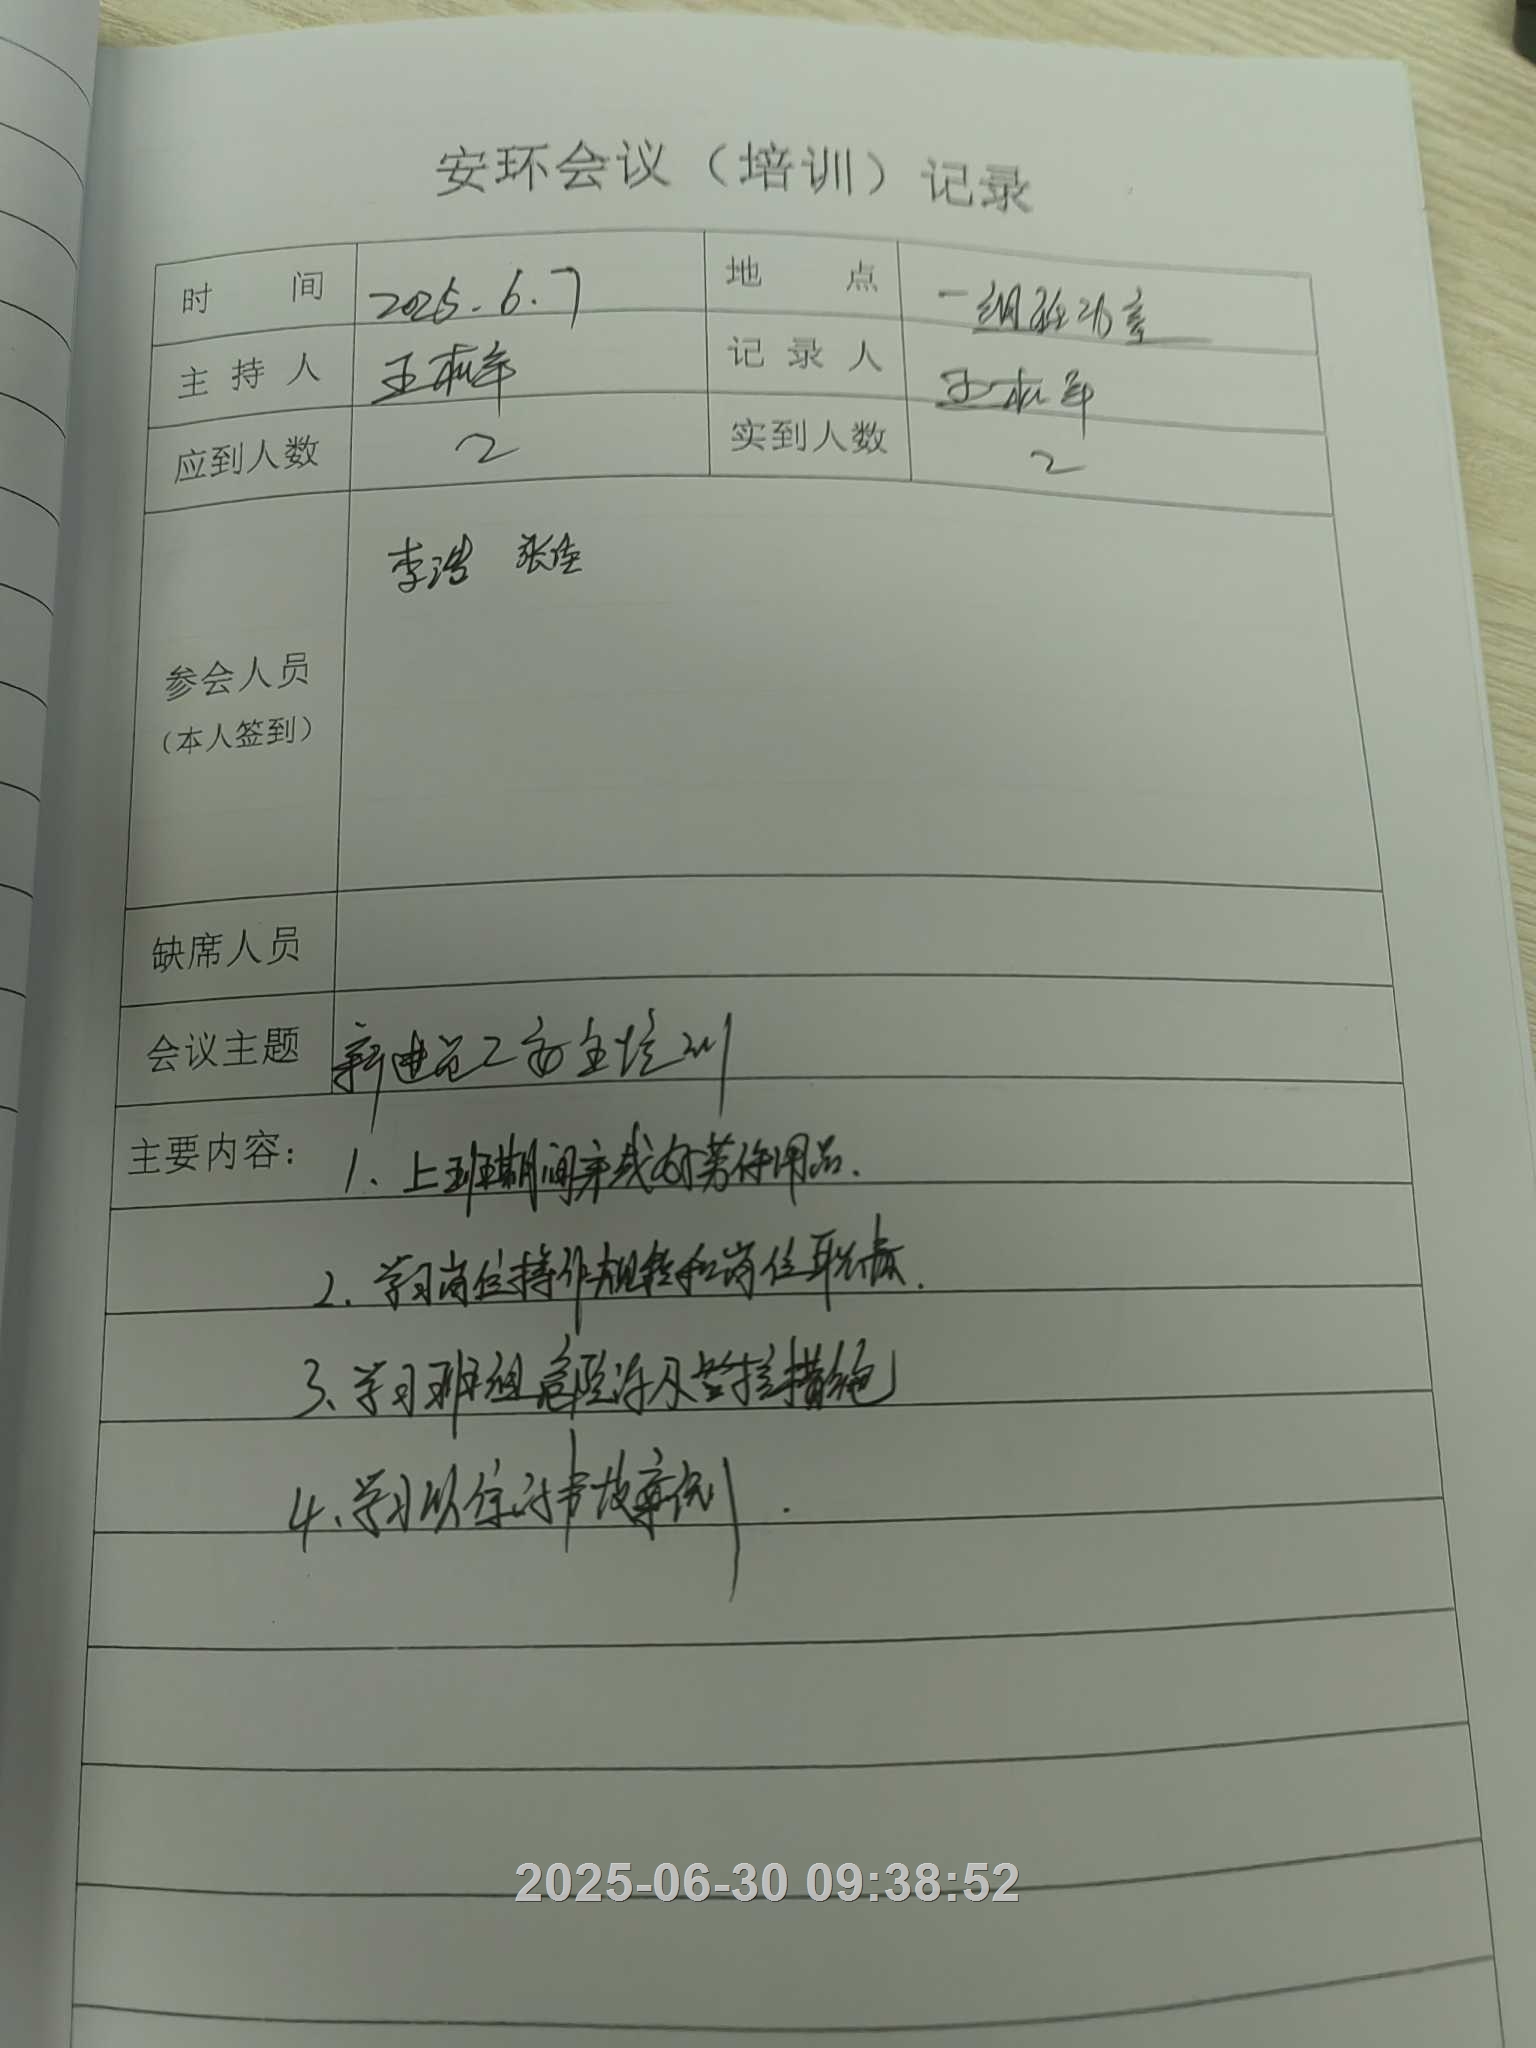 安环会议（培训）记录
时间 2025.6.7 地点 一组
主持人 王 记录人 王
应到人数 2 实到人数 2
李浩 张佳
参会人员
（本人签到）
缺席人员
会议主题 新进员工安全培训
主要内容： 1、上班期间穿戴好劳保用品.
2、学习岗位操作规程和岗位职责.
3、学习班组危险源及管控措施
4、学习以往的事故案例.
2025-06-30 09:38:52